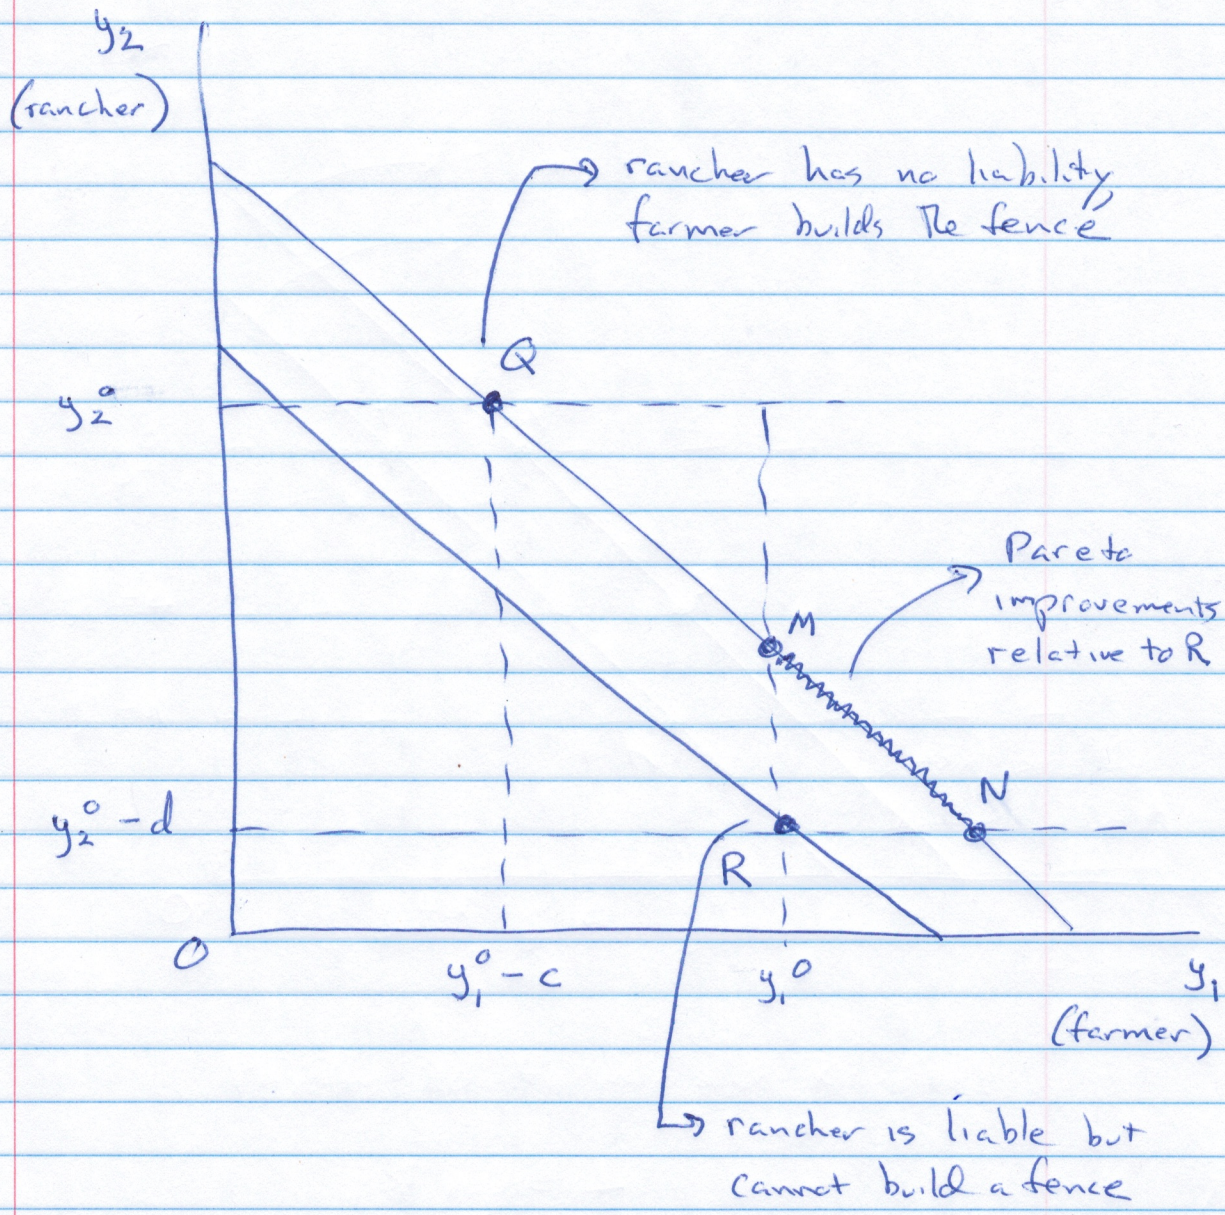 y₂
(rancher)
rancher has no liability,
farmer builds the fence
Q
y₂⁰
Pareto
improvements
relative to R
M
N
y₂⁰ - d
R
O
y₁⁰ - c
y₁⁰
y₁
(farmer)
rancher is liable but
cannot build a fence